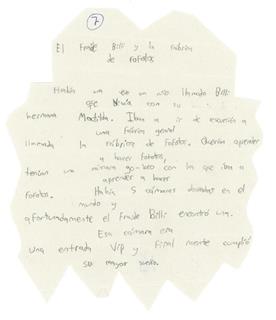 7
El Fraile Billi y la fábrica
de Fofotos
Había una vez un oso llamado Billi
que vivía con su
hermana Mastilda. Iban a ir de excursión a
una fábrica genial
llamada la fábrica de Fofotos. Querían aprender
a hacer fofotos,
tenían una cámara go-beo con la que iba a
aprender a hacer
Fofotos. Había 5 cámaras doradas en el
mundo y
afortunadamente el Fraile Billi encontró una.
Esa cámara era
una entrada Vip y finalmente cumplió
su mayor sueño.